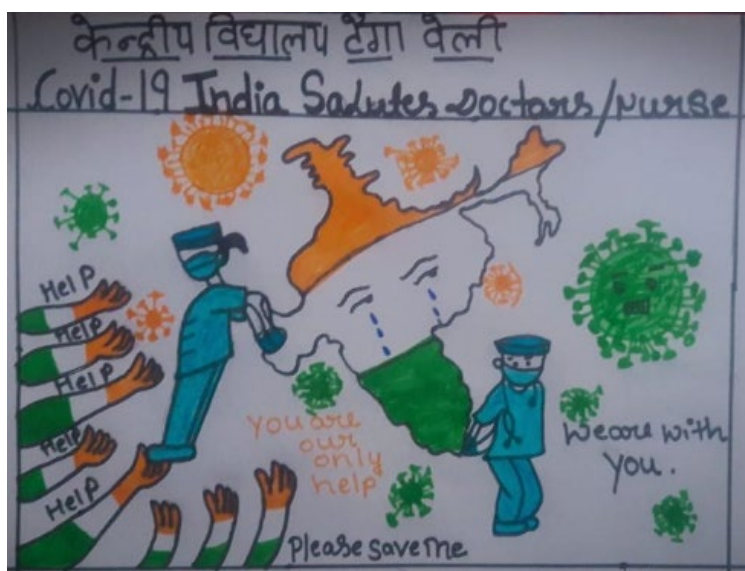 केन्द्रीय विद्यालय टेंगा वेली
Covid-19 India Salutes Doctors/Nurse
Help
Help
Help
Help
Help
You are
our
only
help
We are with
you.
Please save me